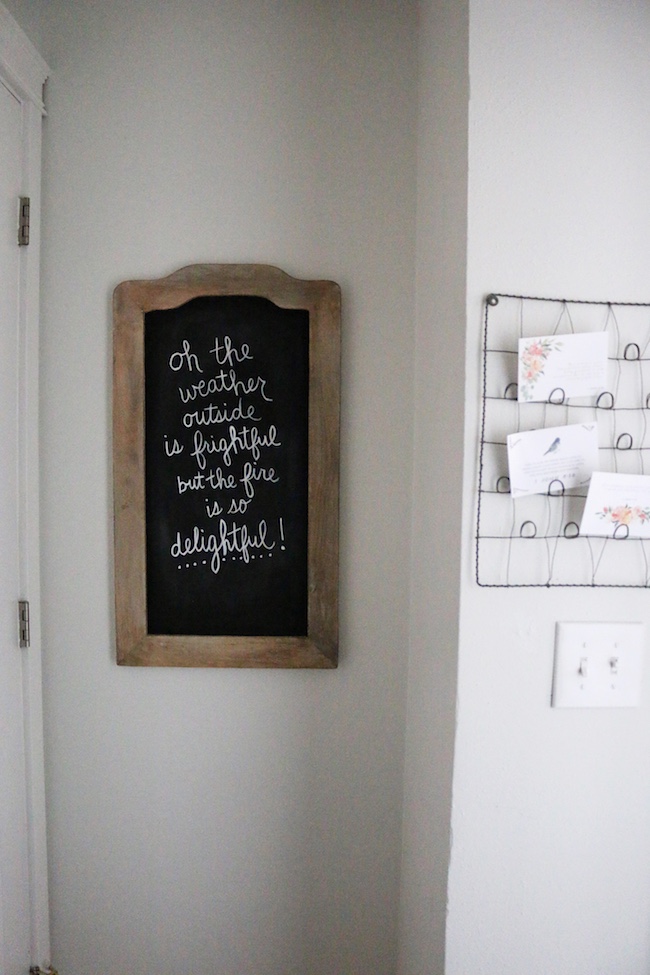 oh the
weather
outside
is frightful
but the fire
is so
delightful!